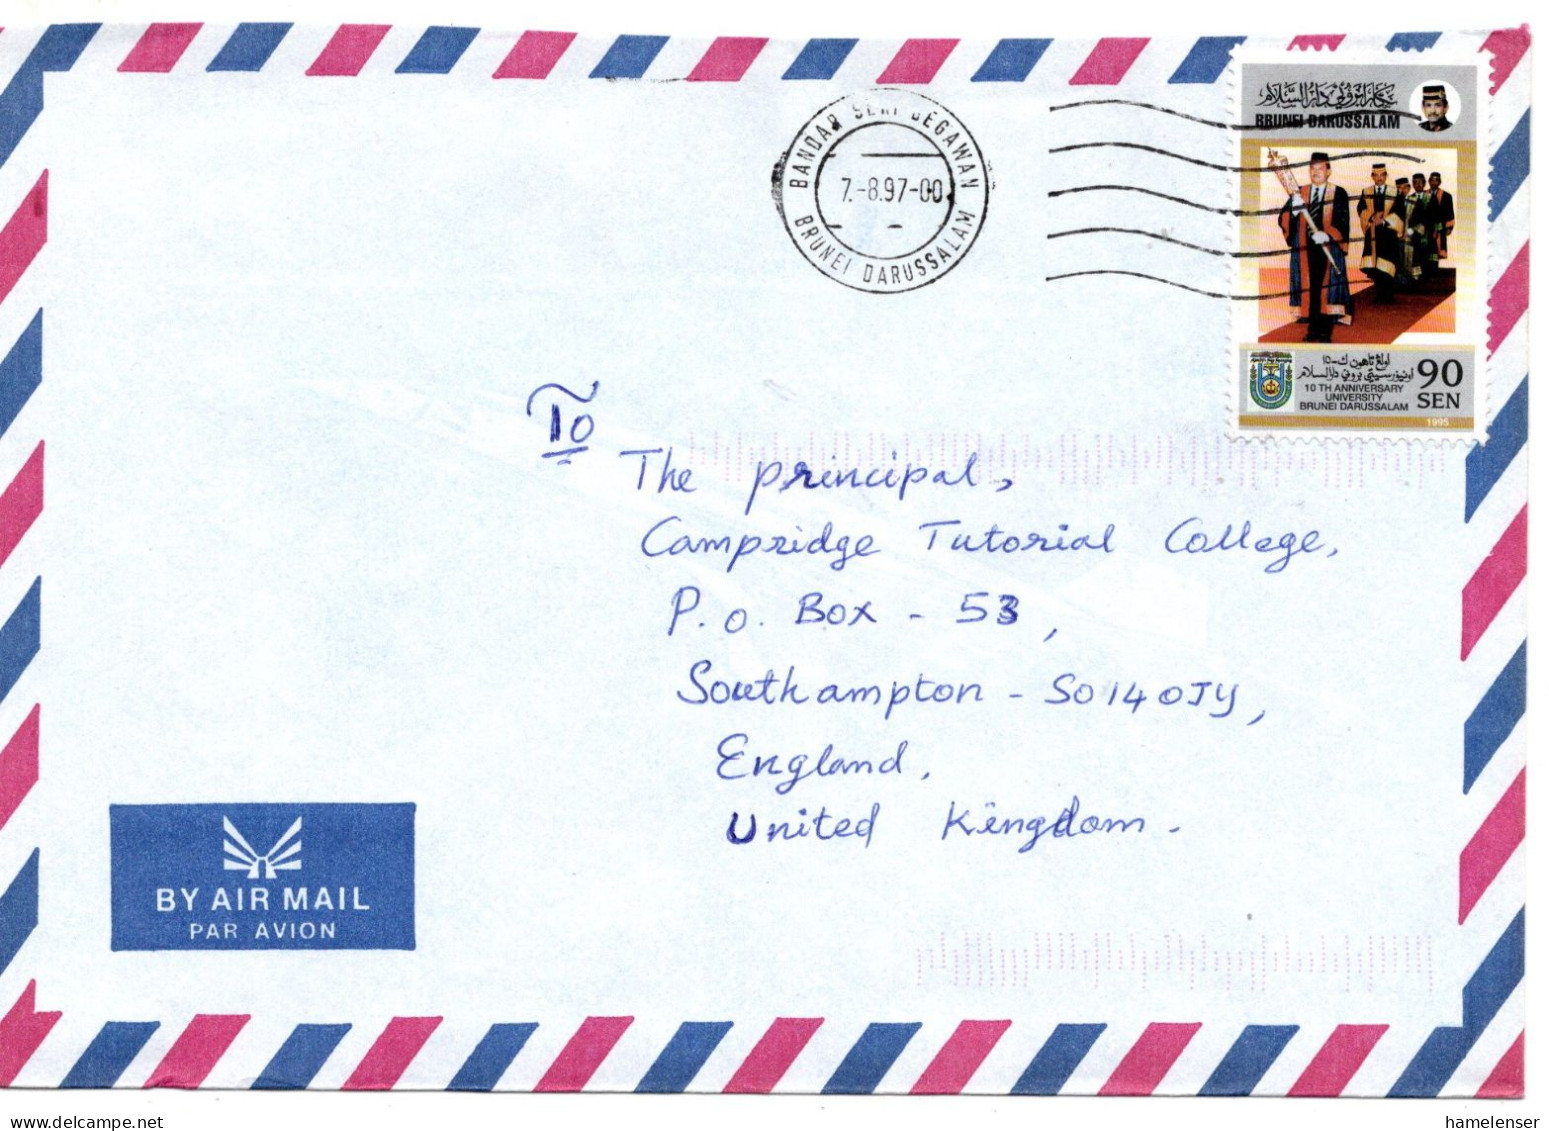 BANDAR SERI BEGAWAN
7.-8.97-00
BRUNEI DARUSSALAM
نݢارا بروني دارالسلام
BRUNEI DARUSSALAM
اولڠ تاهين ك-١٥
اونيۏرسيتي بروني دارالسلام
10 TH ANNIVERSARY
UNIVERSITY
BRUNEI DARUSSALAM
90
SEN
1995
To
The principal,
Campridge Tutorial College,
P.O. Box - 53,
Southampton - SO14 0JY,
England,
United Kingdom -
BY AIR MAIL
PAR AVION
www.delcampe.net
hamelenser